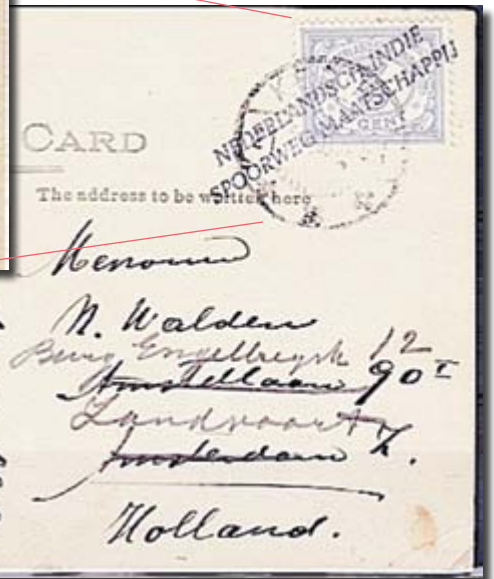 NEDERLANDSCH-INDIE
SPOORWEG MAATSCHAPPIJ
CENT
CARD
The address to be written here
Mevrouw
N. Walden
Burg Engelbregk 12
Amstellaan 90 I
Zandvoort
Amsterdam Z.
Holland.